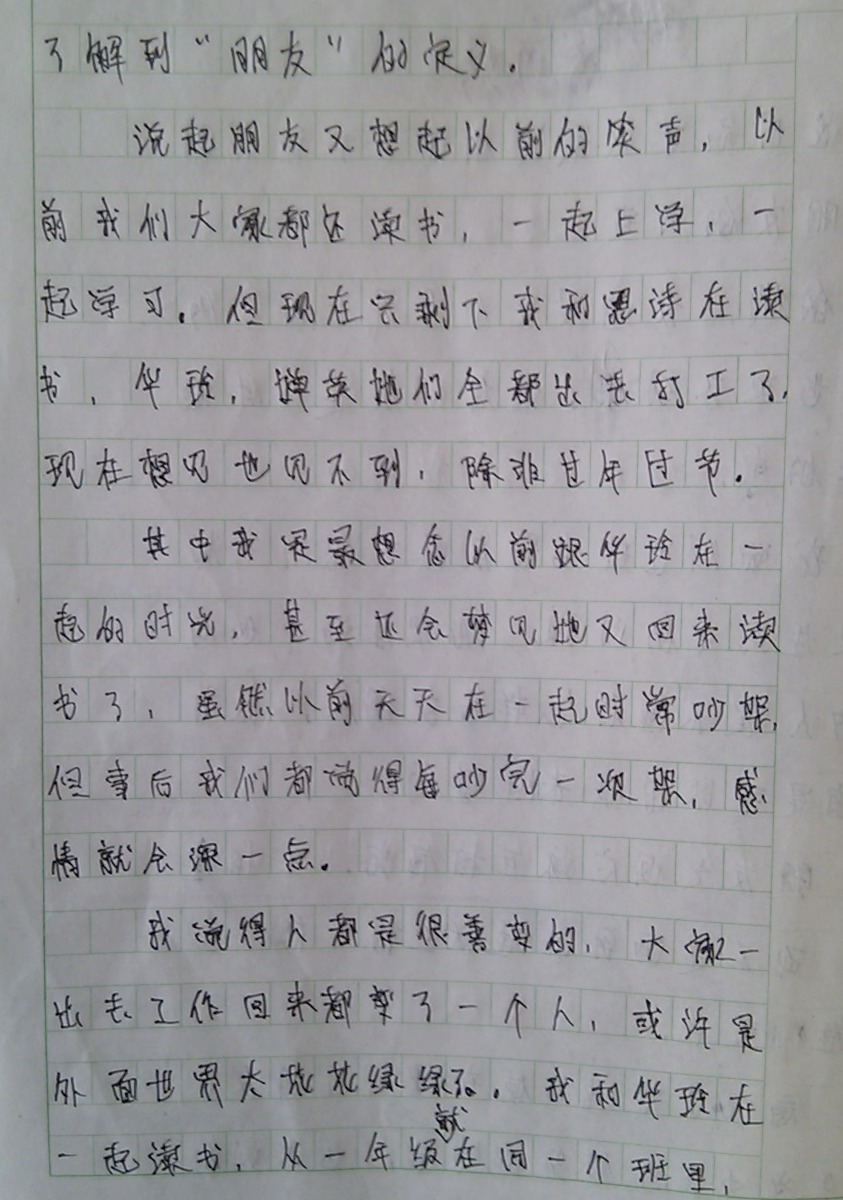 了解到“朋友”的定义.
说起朋友又想起以前的笑声，以
前我们大家都还读书，一起上学，一
起学习。但现在只剩下我和恩诗在读
书，华玲，婵英她们全都出去打工了，
现在想见也见不到，除非过年过节。
其中我是最想念以前跟华玲在一
起的时光，甚至还会梦见她又回来读
书了，虽然以前天天在一起时常吵架，
但事后我们都觉得每吵完一次架，感
情就会深一点。
我觉得人都是很善变的，大家一
出去工作回来都变了一个人，或许是
外面世界太花花绿绿了。我和华玲在
一起读书，从一年级就在同一个班里，